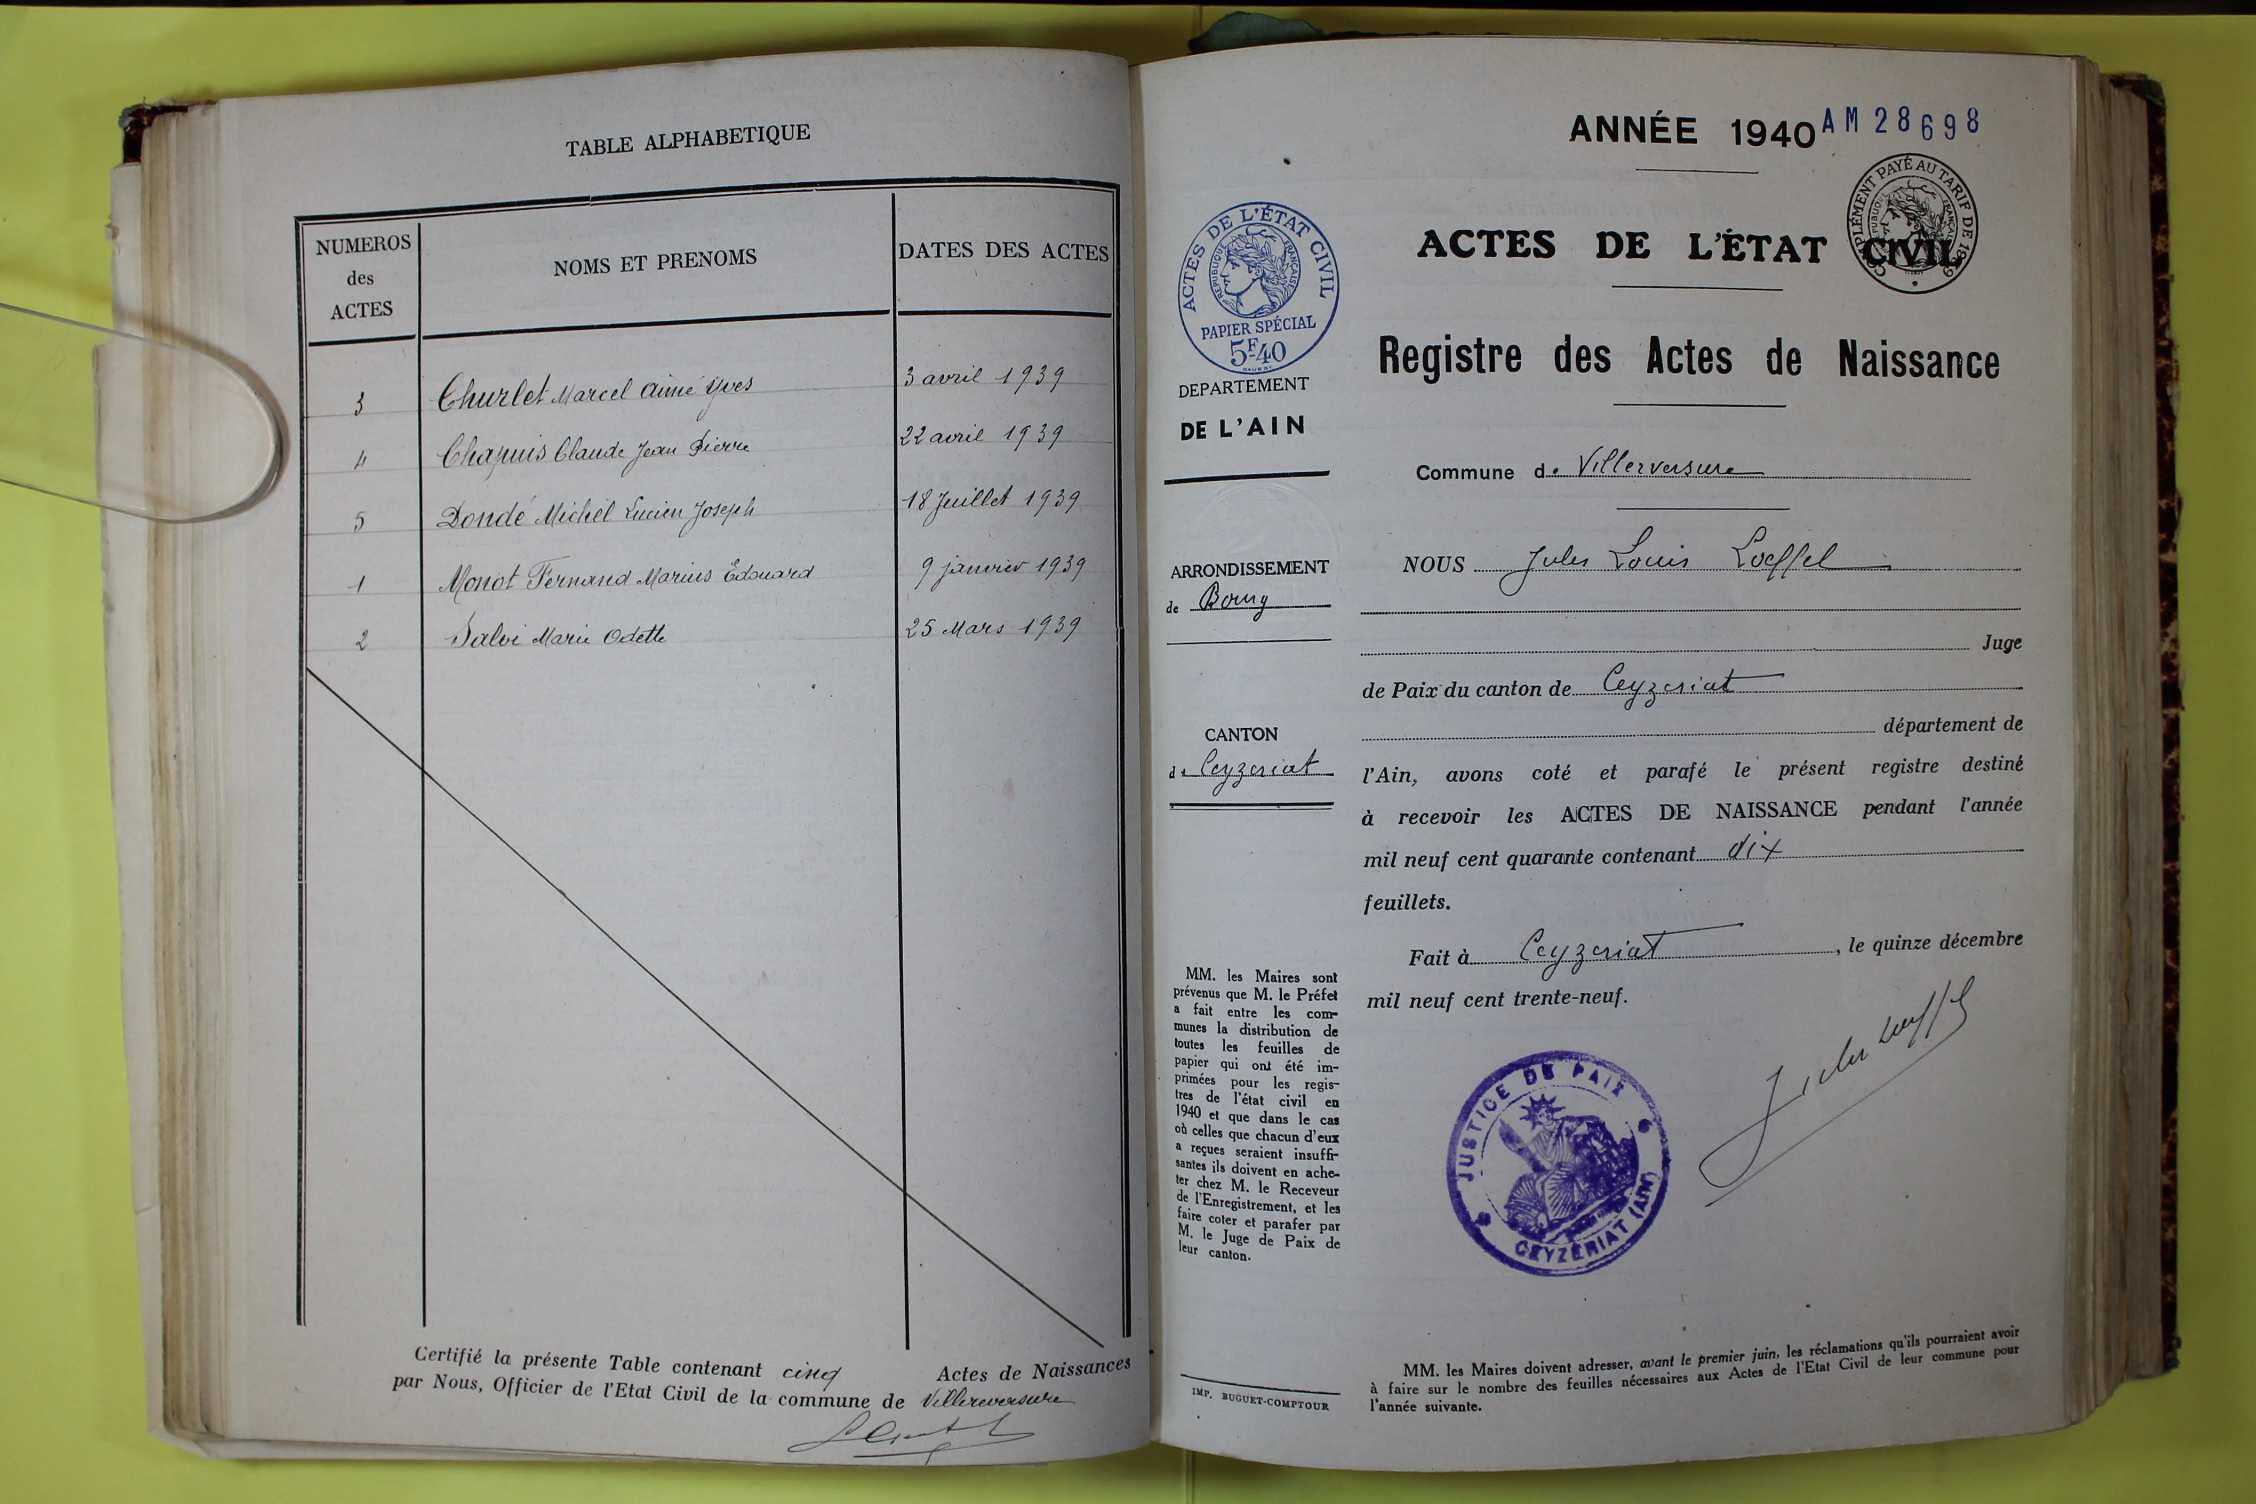 TABLE ALPHABETIQUE
NUMEROS
des
ACTES
NOMS ET PRENOMS
DATES DES ACTES
3 Churlet Marcel Aimé Yves 3 avril 1939
4 Chapuis Claude Jean Pierre 22 avril 1939
5 Dondé Michel Lucien Joseph 18 Juillet 1939
1 Monot Fernand Marius Edouard 9 janvier 1939
2 Salvi Marie Odette 25 Mars 1939
Certifié la présente Table contenant cinq Actes de Naissances
par Nous, Officier de l'Etat Civil de la commune de Villereversure
ANNÉE 1940 AM 28698
COMPLÉMENT PAYÉ AU TARIF DE 1939
RÉPUBLIQUE FRANÇAISE
ACTES DE L'ÉTAT CIVIL
Registre des Actes de Naissance
ACTES DE L'ÉTAT CIVIL
RÉPUBLIQUE FRANÇAISE
PAPIER SPÉCIAL
5F.40
DEPARTEMENT
DE L'AIN
ARRONDISSEMENT
de Bourg
CANTON
de Ceyzeriat
MM. les Maires sont
prévenus que M. le Préfet
a fait entre les com-
munes la distribution de
toutes les feuilles de
papier qui ont été im-
primées pour les regis-
tres de l'état civil en
1940 et que dans le cas
où celles que chacun d'eux
a reçues seraient insuffi-
santes ils doivent en ache-
ter chez M. le Receveur
de l'Enregistrement, et les
faire coter et parafer par
M. le Juge de Paix de
leur canton.
IMP. BUGUET-COMPTOUR
Commune de Villerversure
NOUS Jules Louis Loeffel
Juge
de Paix du canton de Ceyzeriat
département de
l'Ain, avons coté et parafé le présent registre destiné
à recevoir les ACTES DE NAISSANCE pendant l'année
mil neuf cent quarante contenant dix
feuillets.
Fait à Ceyzeriat, le quinze décembre
mil neuf cent trente-neuf.
Jules Loeffel
JUSTICE DE PAIX
CEYZÉRIAT (AIN)
MM. les Maires doivent adresser, avant le premier juin, les réclamations qu'ils pourraient avoir
à faire sur le nombre des feuilles nécessaires aux Actes de l'Etat Civil de leur commune pour
l'année suivante.